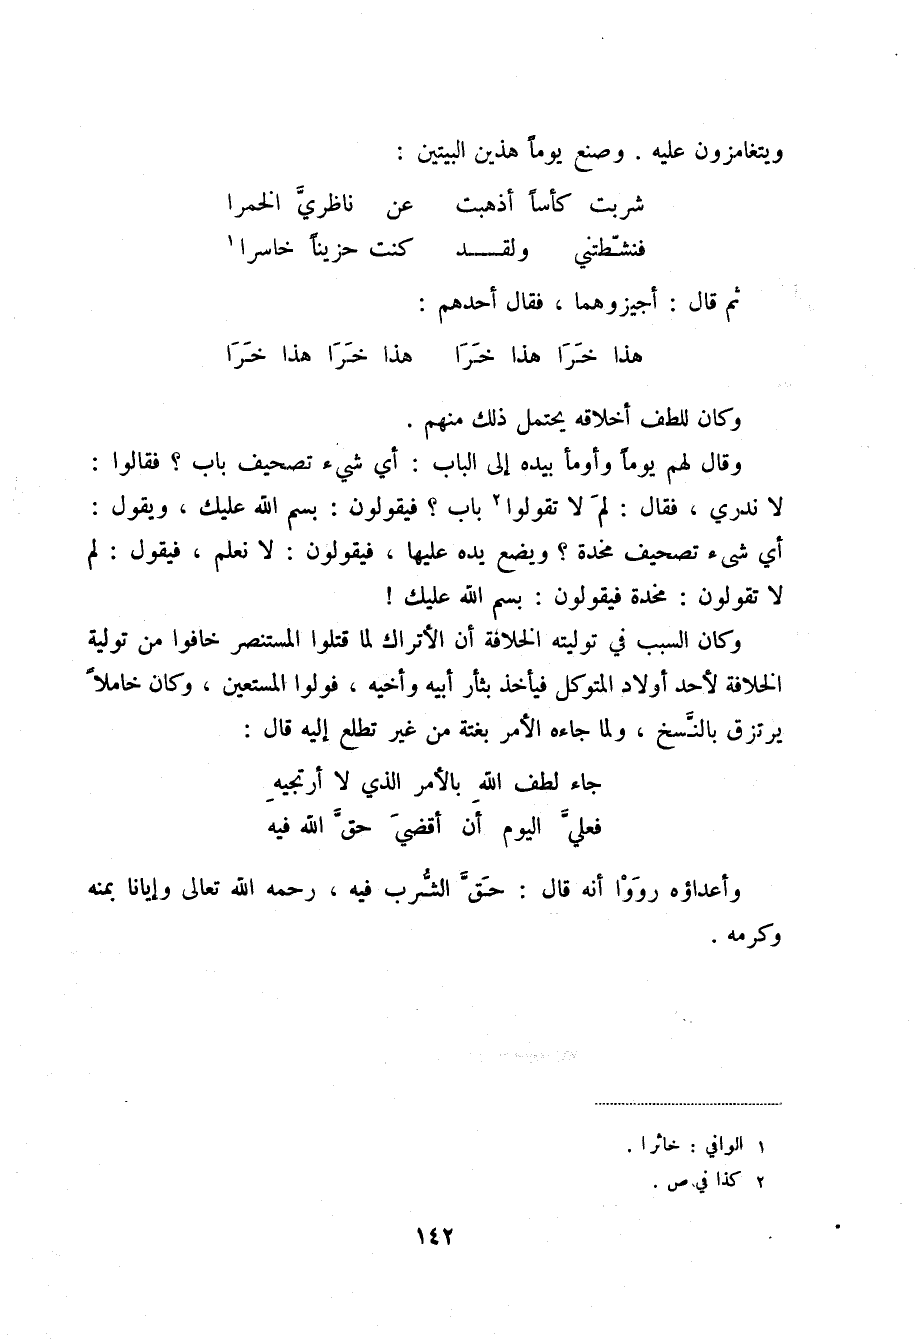 ويتغامزون عليه . وصنع يوماً هذين البيتين :
شربت كأساً أذهبت عن ناظريَّ الخمرا
فنشّطتني ولقـــد كنت حزيناً خاسرا١
ثم قال : أجيزوهما ، فقال أحدهم :
هذا خَرَا هذا خَرَا هذا خَرَا هذا خَرَا
وكان للطف أخلاقه يحتمل ذلك منهم .
وقال لهم يوماً وأومأ بيده إلى الباب : أي شيء تصحيف باب ؟ فقالوا :
لا ندري ، فقال : لمَ لا تقولوا٢ باب ؟ فيقولون : بسم الله عليك ، ويقول :
أي شيء تصحيف مخدة ؟ ويضع يده عليها ، فيقولون : لا نعلم ، فيقول : لم
لا تقولون : مخدة فيقولون : بسم الله عليك !
وكان السبب في توليته الخلافة أن الأتراك لما قتلوا المستنصر خافوا من تولية
الخلافة لأحد أولاد المتوكل فيأخذ بثأر أبيه وأخيه ، فولوا المستعين ، وكان خاملاً
يرتزق بالنَّسخ ، ولما جاءه الأمر بغتة من غير تطلع إليه قال :
جاء لطف اللهِ بالأمر الذي لا أرتجيهِ
فعليَّ اليوم أن أقضيَ حقَّ الله فيه
وأعداؤه رووْا أنه قال : حَقَّ الشُّرب فيه ، رحمه الله تعالى وإيانا بمنه
وكرمه .
١ الوافي : خاثرا .
٢ كذا في ص .
١٤٢